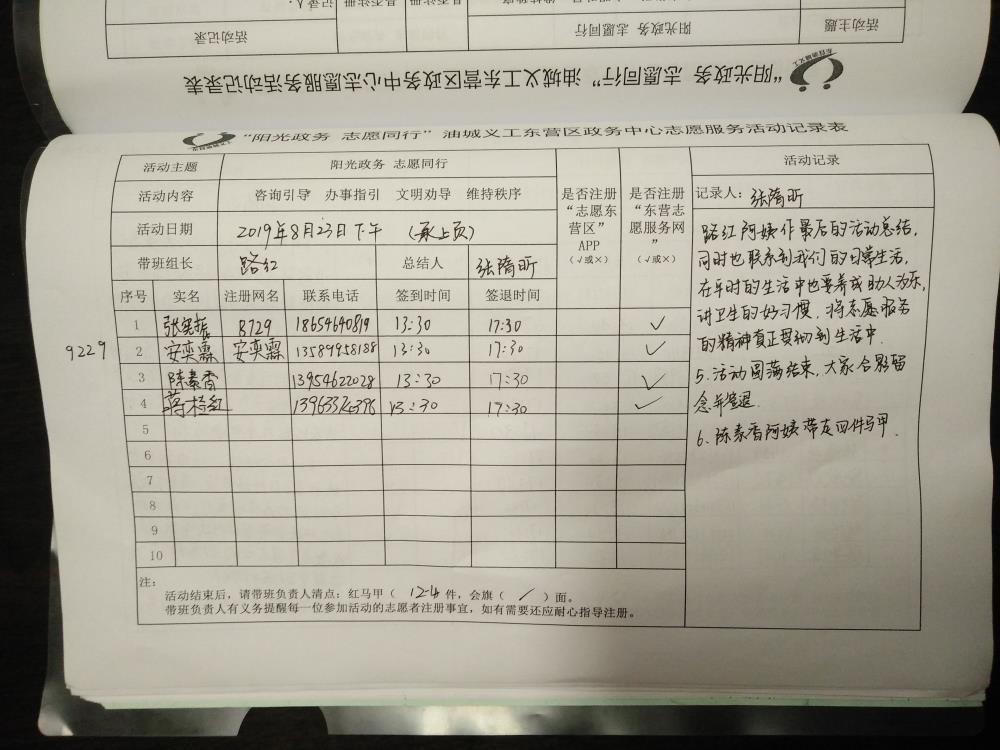 活动记录
阳光政务 志愿同行
活动主题
“阳光政务 志愿同行”油城义工东营区政务中心志愿服务活动记录表
“阳光政务 志愿同行”油城义工东营区政务中心志愿服务活动记录表
活动主题 阳光政务 志愿同行 活动记录
活动内容 咨询引导 办事指引 文明劝导 维持秩序
是否注册“志愿东营区”APP（√或×）
是否注册“东营志愿服务网”（√或×）
记录人：张隋昕
活动日期 2019年8月23日下午 （承上页）
带班组长 路红 总结人 张隋昕
序号 实名 注册网名 联系电话 签到时间 签退时间
1 张宪振 8729 18654640819 13:30 17:30 ✓
9229
2 安奕霖 安奕霖 13589958188 13:30 17:30 ✓
3 陈素香 13954622028 13:30 17:30 ✓
4 蒋 红 13963374396 13:30 17:30 ✓
5
6
7
8
9
10
路红阿姨作最后的活动总结，
同时也联系到我们的日常生活，
在平时的生活中也要养成助人为乐，
讲卫生的好习惯，将志愿服务
的精神真正贯彻到生活中.
5、活动圆满结束，大家合影留
念并签退.
6、陈素香阿姨带走四件马甲.
注：
活动结束后，请带班负责人清点：红马甲（ 12-4 件，会旗（ / ）面。
带班负责人有义务提醒每一位参加活动的志愿者注册事宜，如有需要还应耐心指导注册。